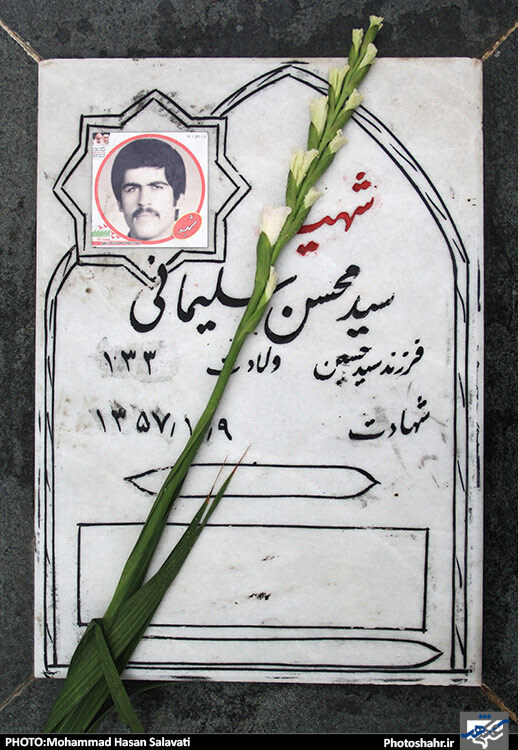 شهید
شهید
سید محسن سلیمانی
فرزند سید حسین ولادت ۱۳۳
شهادت ۱۳۵۷/۱/۹
PHOTO:Mohammad Hasan Salavati
Photoshahr.ir